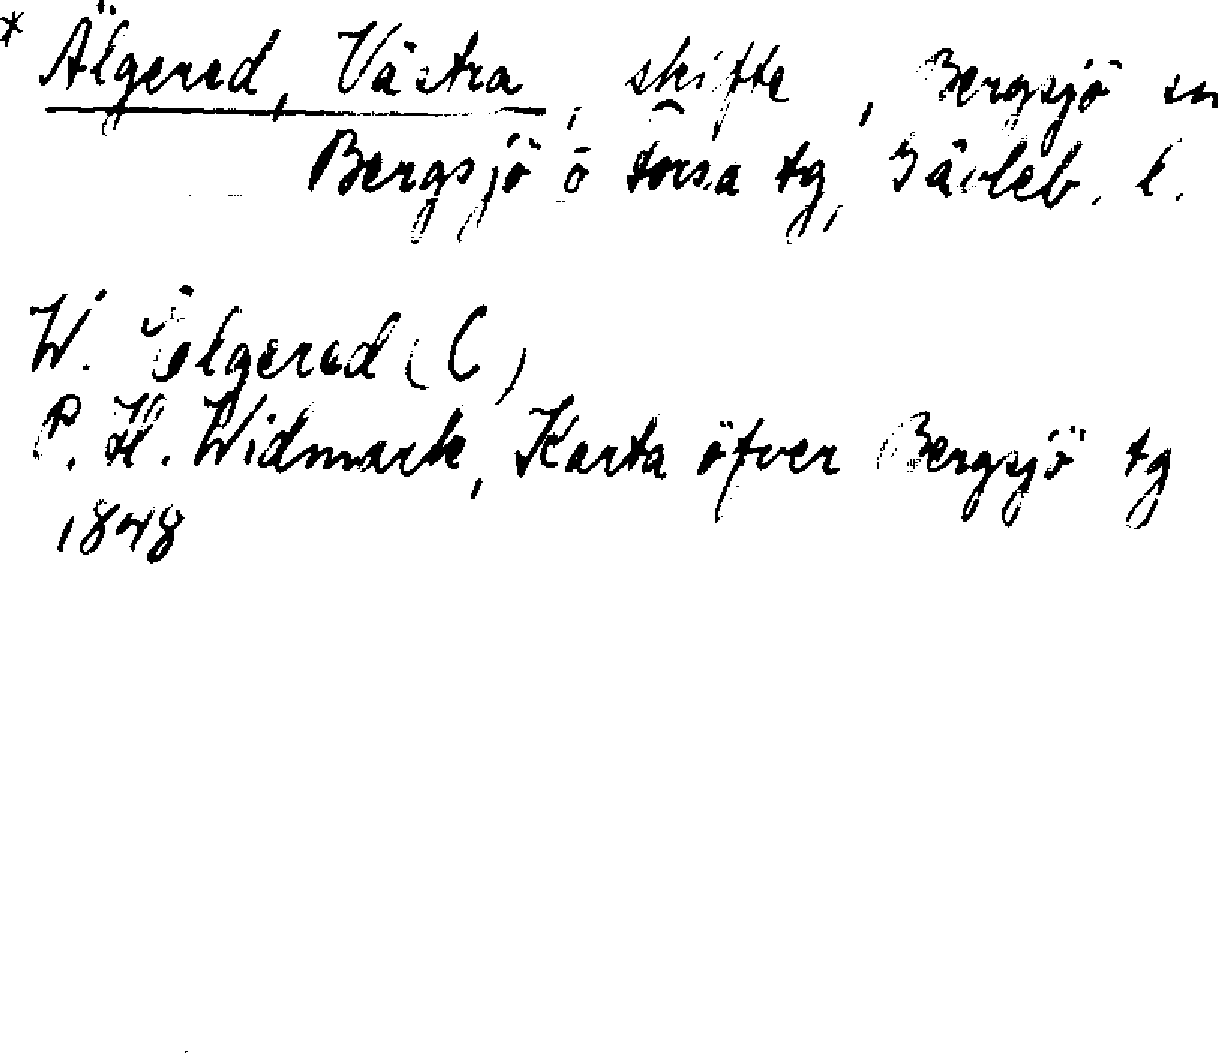 * Älgered, Västra, skifte, Bergsjö sn
Bergsjö o torsa tg, Gävleb. l.
W. Elgered (C)
P. H. Widmark, Karta öfver Bergsjö tg
1848